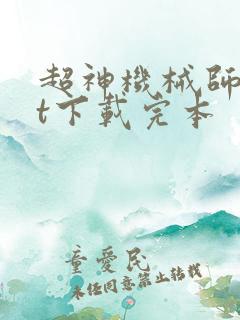 超神機械師
t下載完本
童愛民
未经同意禁止转载